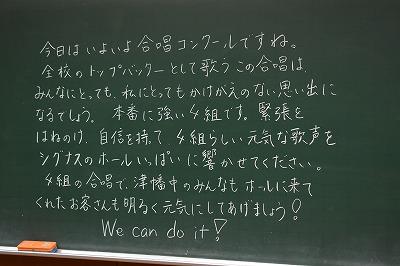 今日はいよいよ合唱コンクールですね。
全校のトップバッターとして歌うこの合唱は、
みんなにとっても、私にとってもかけがえのない思い出に
なるでしょう。本番に強い4組です。緊張を
はねのけ、自信を持って、4組らしい元気な歌声を
シグナスのホールいっぱいに響かせてください。
4組の合唱で、津幡中のみんなもホールに来て
くれたお客さんも明るく元気にしてあげましょう!
We can do it!